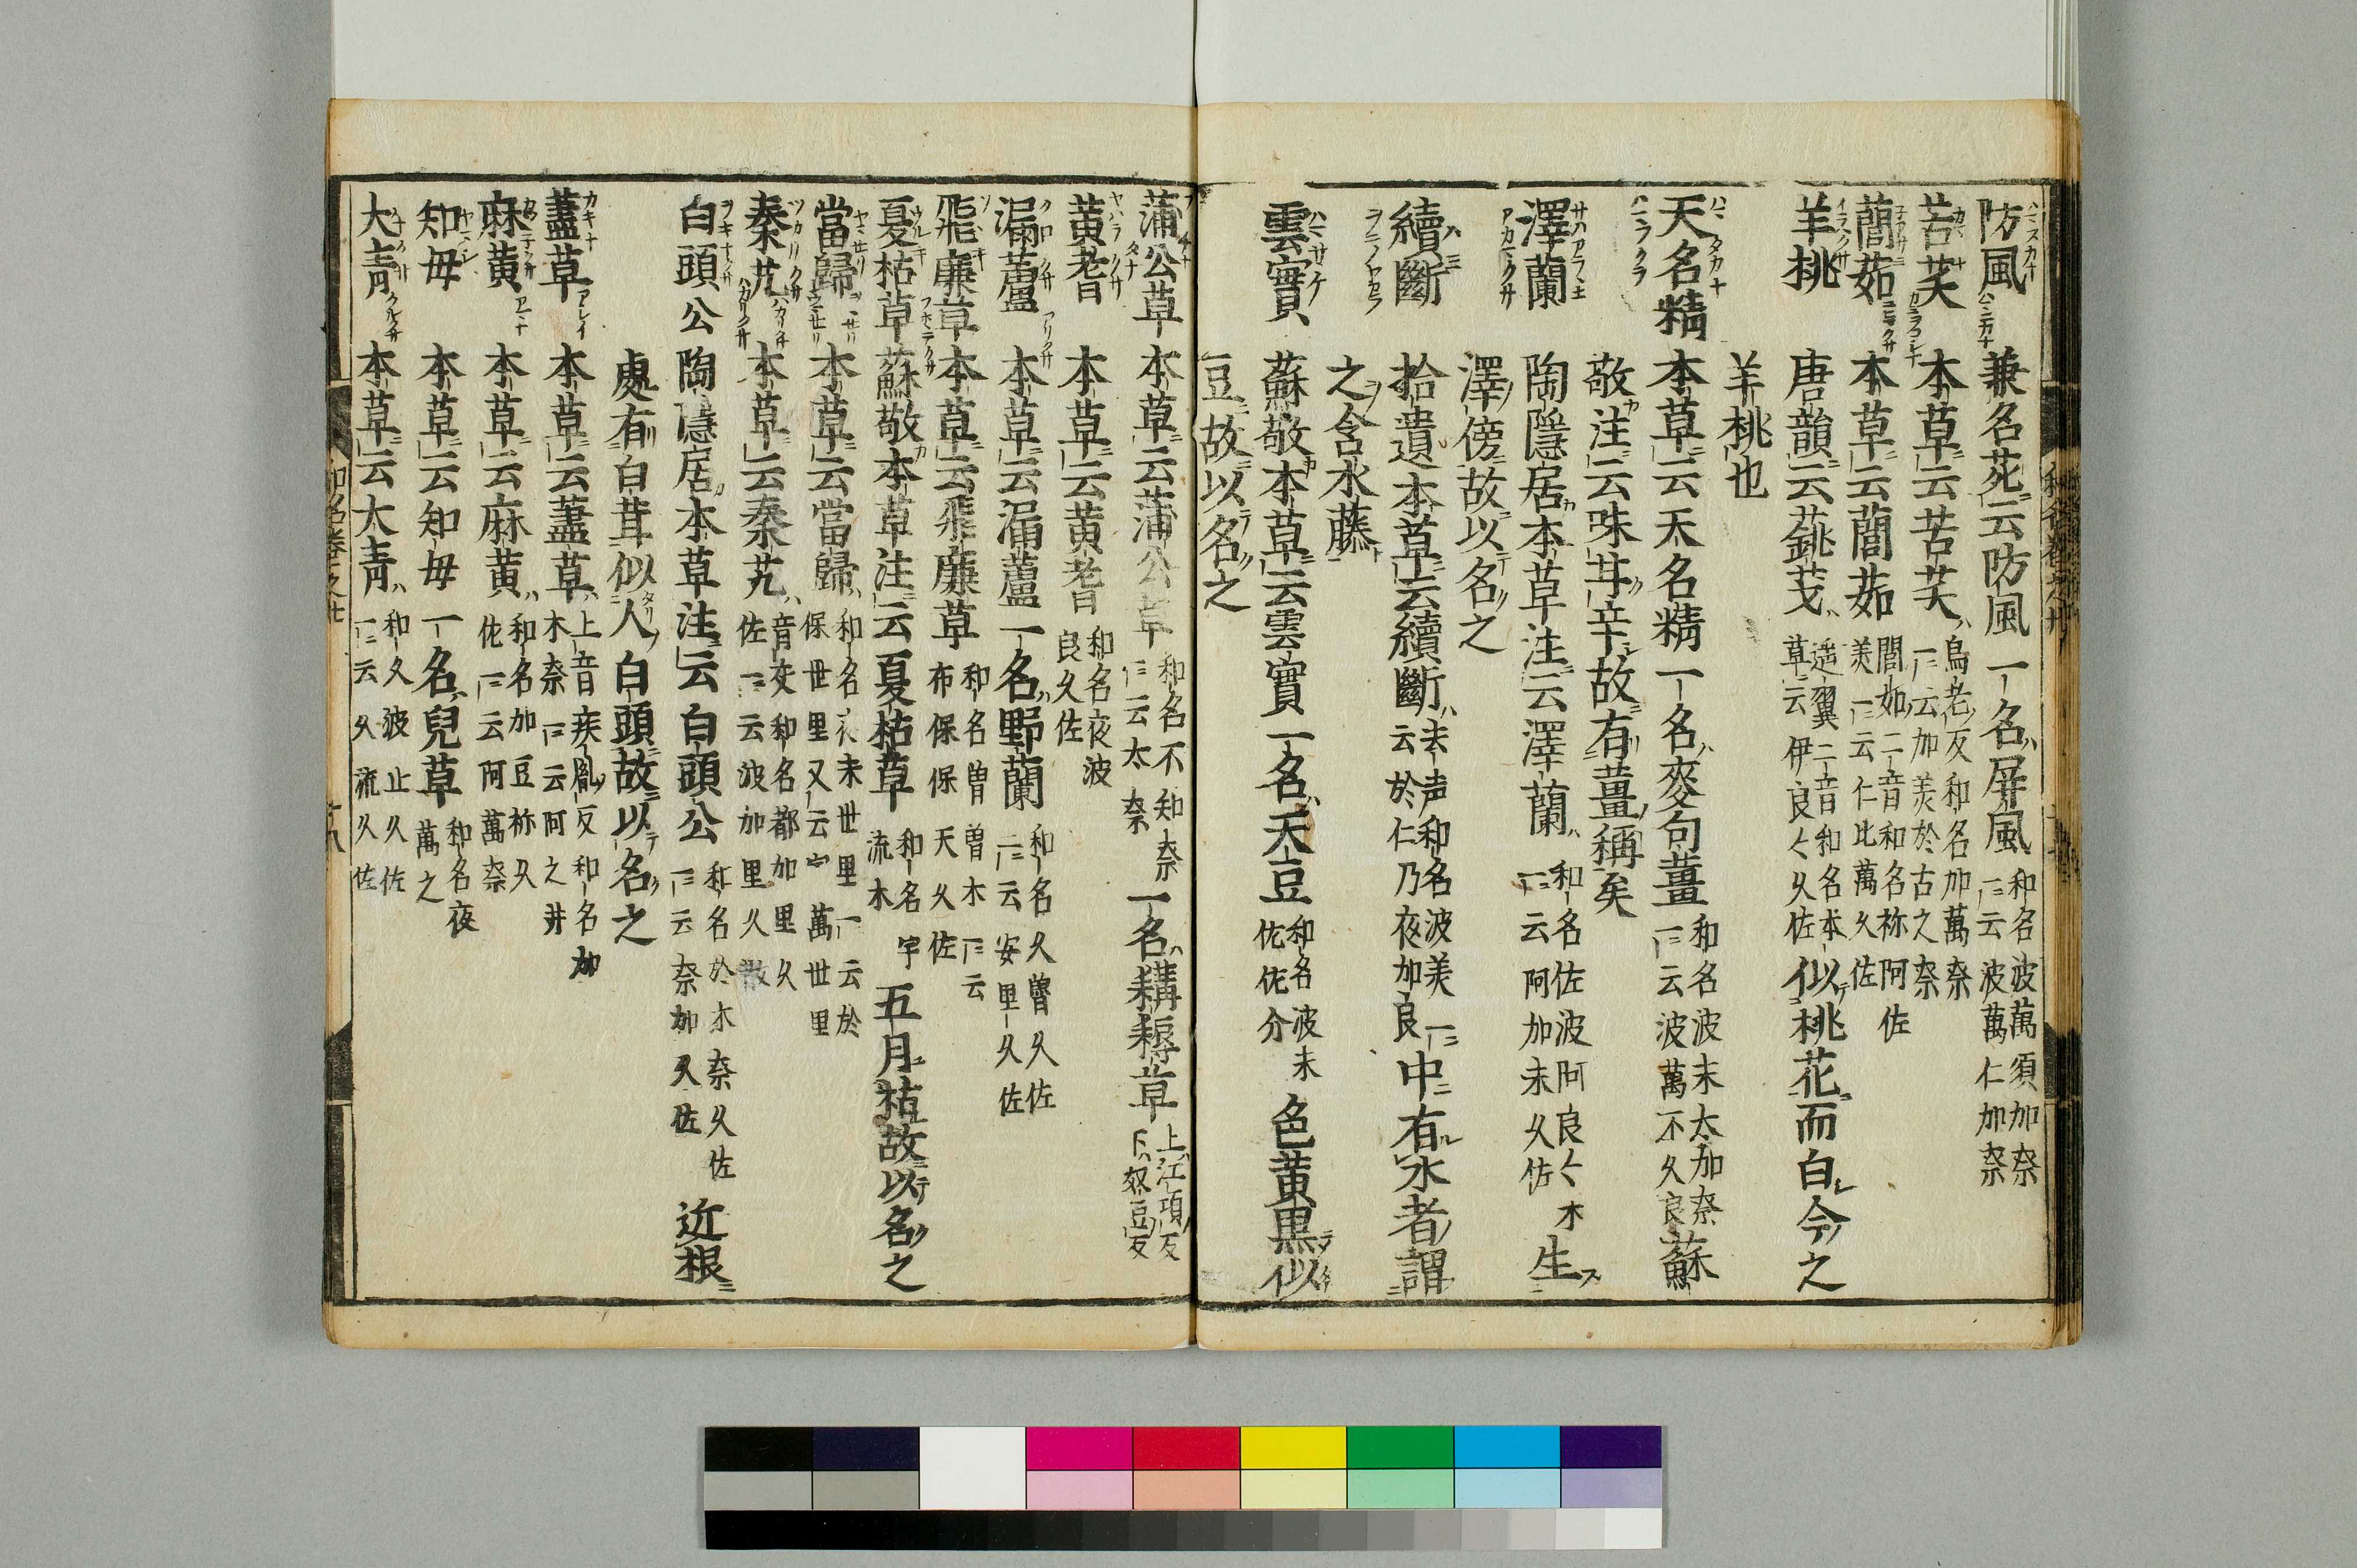 防風 兼名苑云防風一名屏風 和名波萬須加奈 一云波萬仁加奈
苦芺 本草云苦芺 烏老反和名加萬奈 一云加美於古之奈
䕡茹 本草云䕡茹 閭如二音和名祢阿佐 美一云仁比萬久佐
羊桃 唐韻云銚芅 遥翼二音和名本 草云伊良々久佐 似桃花而白今之
羊桃也
天名精 本草云天名精一名麥句薑 和名波末太加奈 一云波萬不久良 蘇
敬注云味甘辛故有薑稱矣
澤蘭 陶隱居本草注云澤蘭 和名佐波阿良々木 一云阿加末久佐 生
澤傍故以名之
續斷 拾遺本草云續斷 去声和名波美 一云於仁乃夜加良 中有水者謂
之含水藤
雲實 蘇敬本草云雲實一名天豆 和名波末佐佐介 色黄黒似
豆故以名之
蒲公草 本草云蒲公草 和名不知奈 一云太奈 一名耩耨草 上江項反 下奴豆反
黄耆 本草云黄耆 和名夜波良久佐
漏蘆 本草云漏蘆一名野蘭 和名久曽久佐 一云安里久佐
飛廉草 本草云飛廉草 和名曽曽木一云 布保保天久佐
夏枯草 蘇敬本草注云夏枯草 和名宇流木 五月枯故以名之
當歸 本草云當歸 和名夜末世里一云於保世里又云宇萬世里
秦艽 本草云秦艽 音交和名都加里久佐一云波加里久佐
白頭公 陶隱居本草注云白頭公 和名於木奈久佐 一云奈加久佐 近根
處有白茸似人白頭故以名之
藎草 本草云藎草 上音疾胤反和名加木奈一云阿之井
麻黄 本草云麻黄 和名加豆祢久佐一云阿萬奈
知母 本草云知母一名兒草 和名夜萬之
大青 本草云大青 和名波止久佐 一云久流久佐